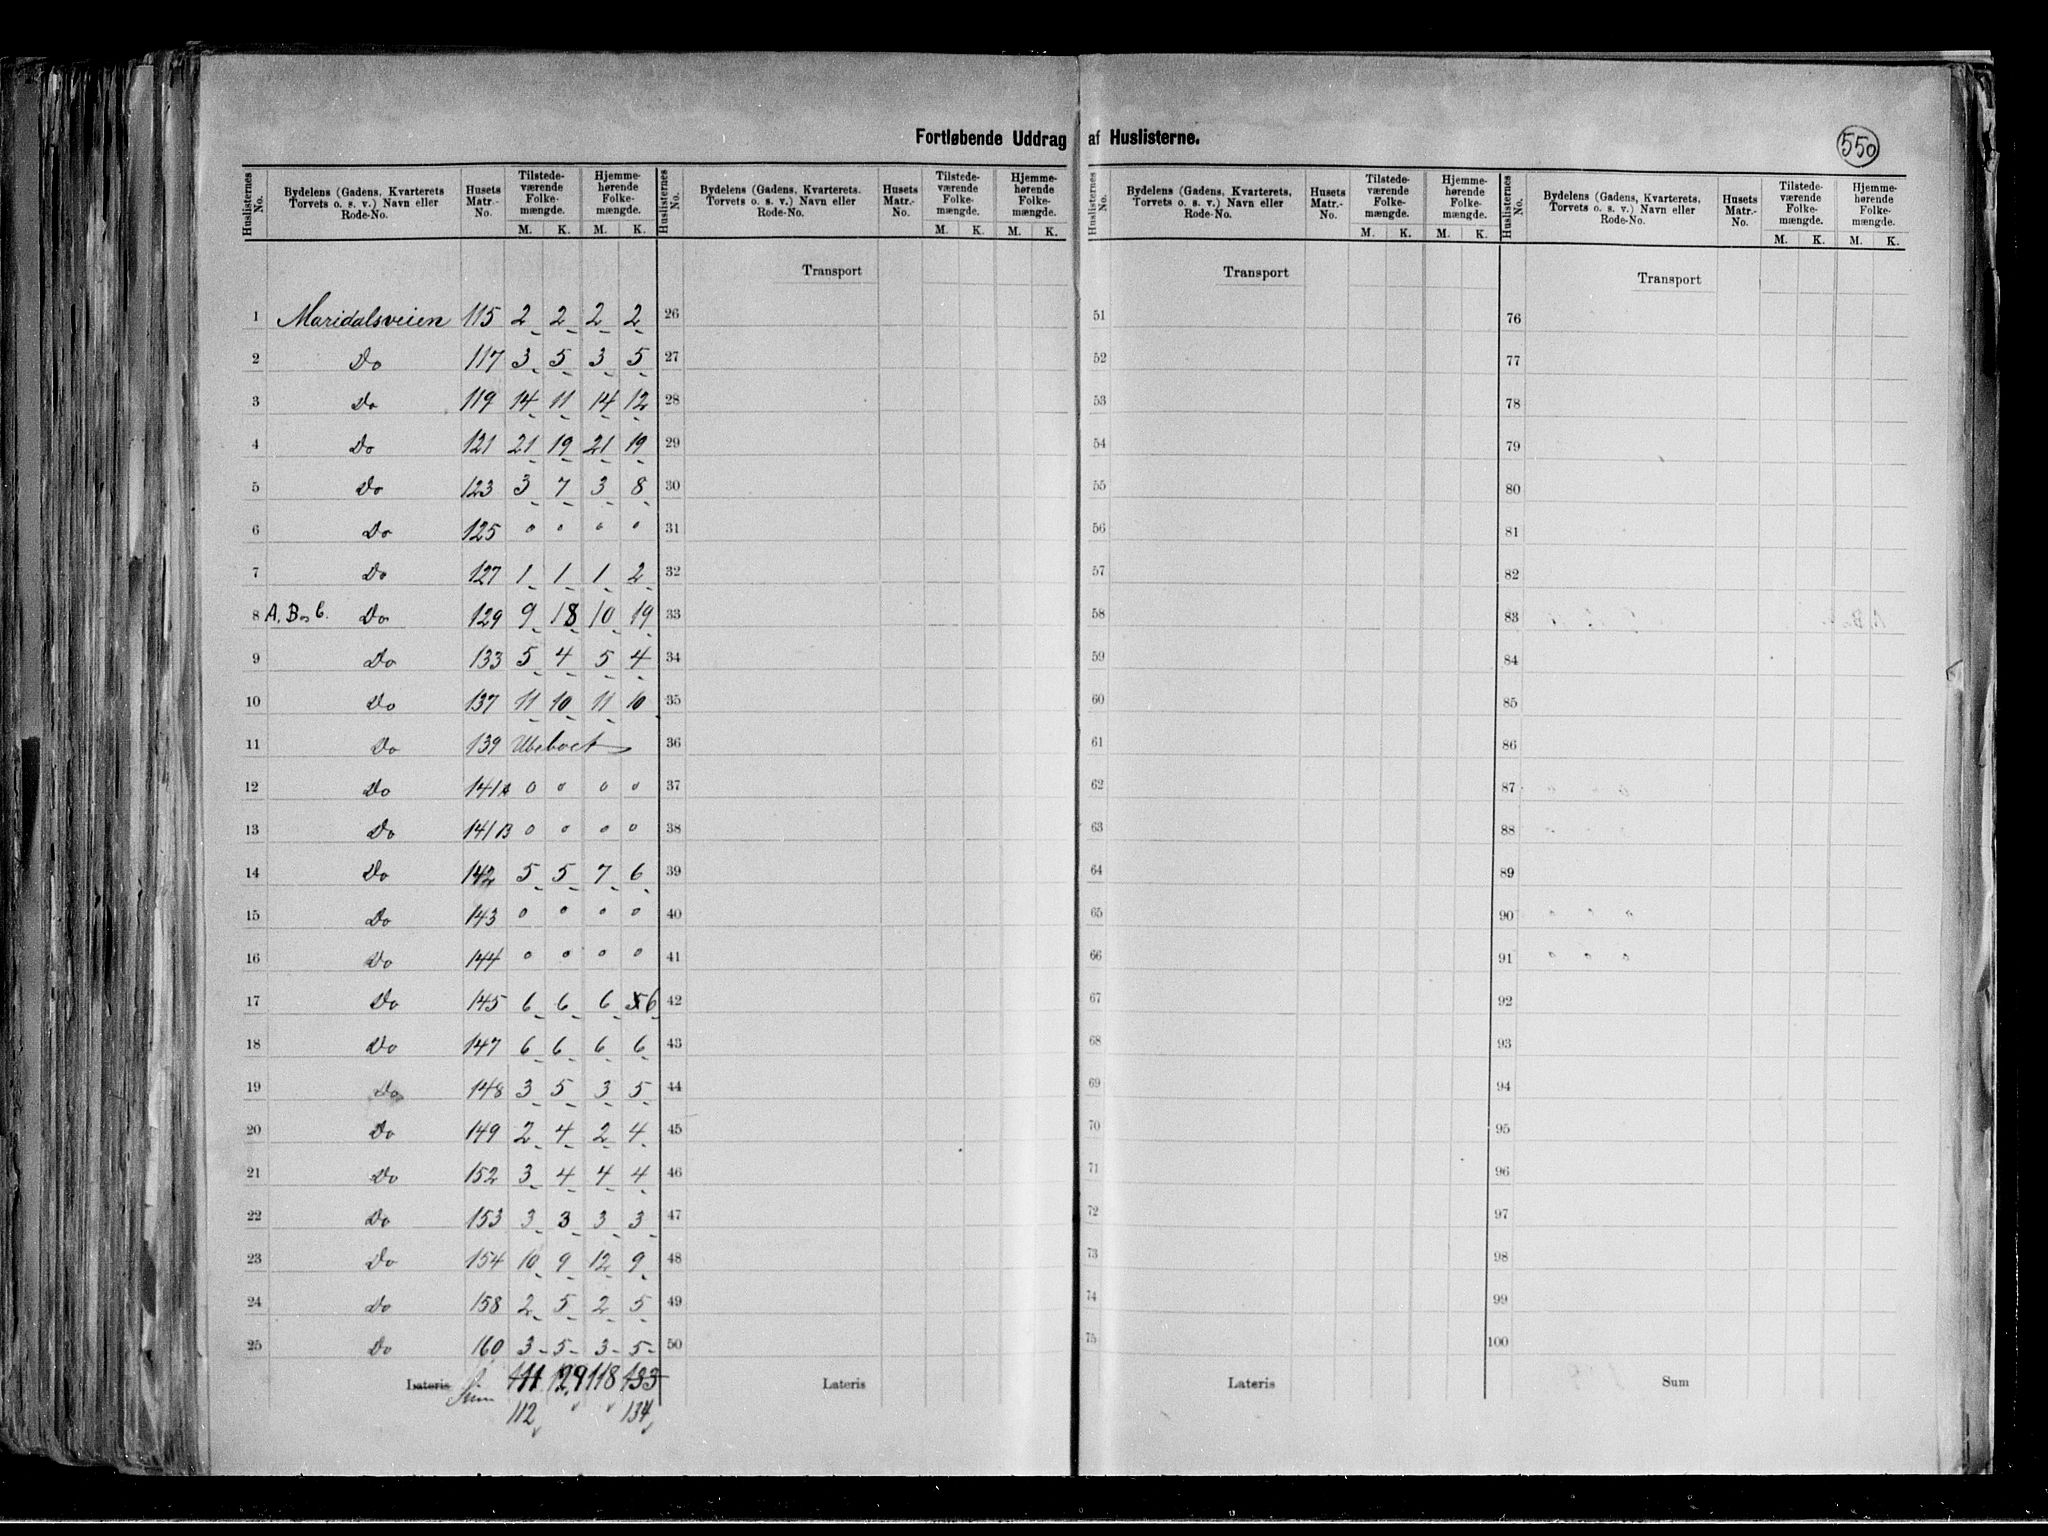 Fortløbende Uddrag af Huslisterne.
550
Huslisternes No. | Bydelens (Gadens, Kvarterets Torvets o. s. v.) Navn eller Rode-No. | Husets Matr.-No. | Tilstede-værende Folke-mængde. M. K. | Hjemme-hørende Folke-mængde. M. K.
Huslisternes No. | Bydelens (Gadens, Kvarterets. Torvets o. s. v.) Navn eller Rode-No. | Husets Matr.-No. | Tilstede-værende Folke-mængde. M. K. | Hjemme-hørende Folke-mængde. M. K.
Huslisternes No. | Bydelens (Gadens, Kvarterets, Torvets o. s. v.) Navn eller Rode-No. | Husets Matr.-No. | Tilstede-værende Folke-mængde. M. K. | Hjemme-hørende Folke-mængde. M. K.
Huslisternes No. | Bydelens (Gadens, Kvarterets, Torvets o. s. v.) Navn eller Rode-No. | Husets Matr.-No. | Tilstede-værende Folke-mængde. M. K. | Hjemme-hørende Folke-mængde. M. K.
Transport Transport Transport
1 Maridalsveien 115 2 2 2 2 26 51 76
2 Do 117 3 5 3 5 27 52 77
3 Do 119 14 11 14 12 28 53 78
4 Do 121 21 19 21 19 29 54 79
5 Do 123 3 7 3 8 30 55 80
6 Do 125 0 0 0 0 31 56 81
7 Do 127 1 1 1 2 32 57 82
8 A, B og C. Do 129 9 18 10 19 33 58 83
9 Do 133 5 4 5 4 34 59 84
10 Do 137 11 10 11 10 35 60 85
11 Do 139 Ubeboet 36 61 86
12 Do 141A 0 0 0 0 37 62 87
13 Do 141B 0 0 0 0 38 63 88
14 Do 142 5 5 7 6 39 64 89
15 Do 143 0 0 0 0 40 65 90
16 Do 144 0 0 0 0 41 66 91
17 Do 145 6 6 6 5 6 42 67 92
18 Do 147 6 6 6 6 43 68 93
19 Do 148 3 5 3 5 44 69 94
20 Do 149 2 4 2 4 45 70 95
21 Do 152 3 4 4 4 46 71 96
22 Do 153 3 3 3 3 47 72 97
23 Do 154 10 9 12 9 48 73 98
24 Do 158 2 5 2 5 49 74 99
25 Do 160 3 5 3 5 50 75 100
Lateris Sum 111 129 118 133 Lateris Lateris Sum
112 134